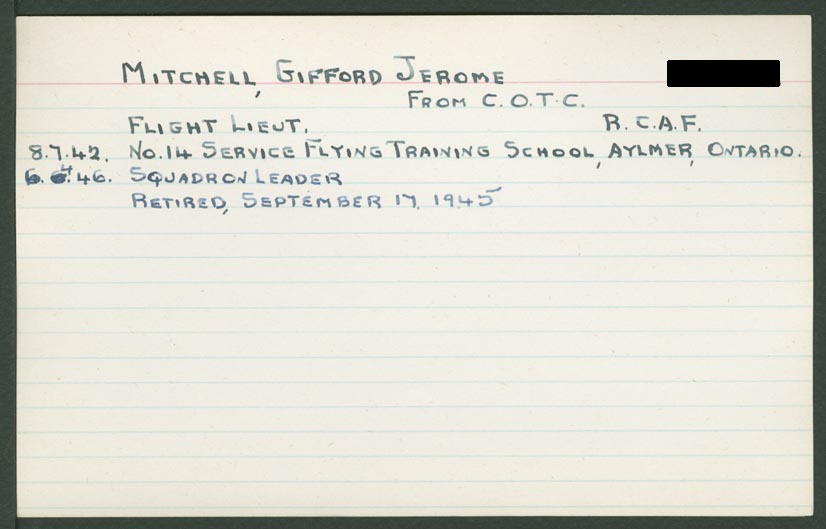 MITCHELL, GIFFORD JEROME
FROM C.O.T.C.
FLIGHT LIEUT. R.C.A.F.
8.7.42. NO.14 SERVICE FLYING TRAINING SCHOOL, AYLMER, ONTARIO.
6. 4. 46. SQUADRON LEADER
RETIRED, SEPTEMBER 17, 1945